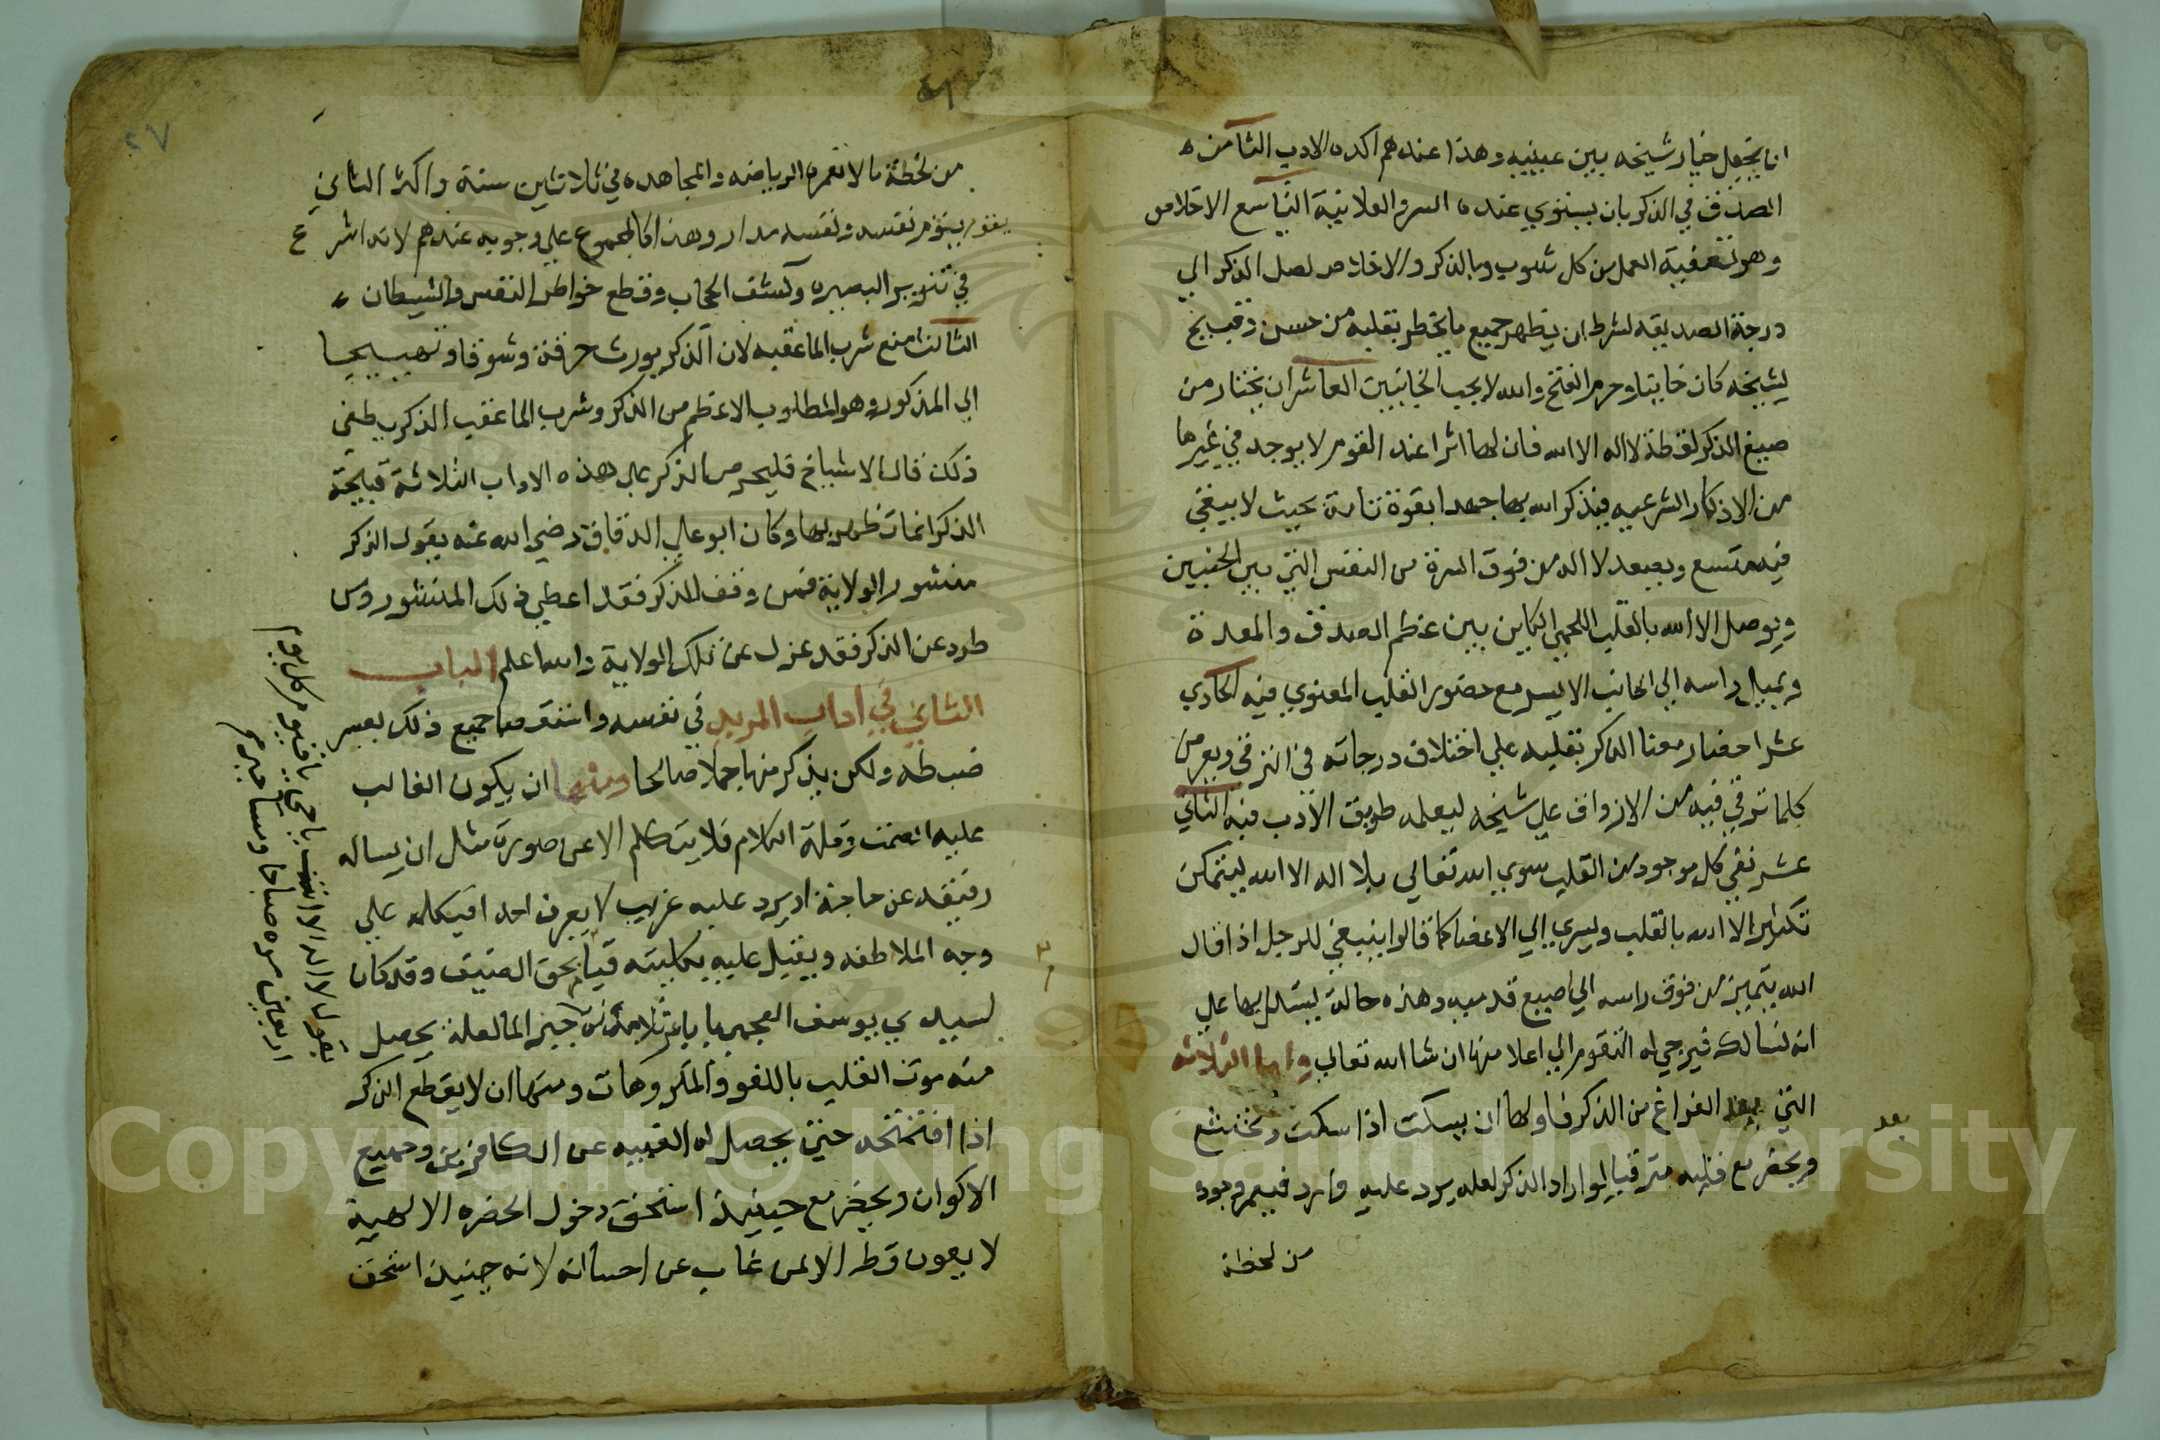 ان يجعل خيال شيخه بين عينيه وهذا عندهم اكد الادب الثامن
الصدق في الذكر بان يستوي عنده السر والعلانية التاسع الاخلاص
وهو تصفية العمل من كل شوب وبالذكر والاخلاص لصل الذكر الي
درجة الصديقيه لشرط ان يظهر جميع ما يخطر بقلبه من حسن وقبيح
لشيخه كان خاينا وحرم الفتح والله لا يحب الخاينين العاشر ان يختار من
صيغ الذكر لفظة لا اله الا الله فان لها اثرا عند القوم لا يوجد في غيرها
من الاذكار الشرعيه فيذكر الله بها جهدا بقوة تامة بحيث لا يبقي
فيه متسع ويصعد لا اله من فوق السرة من النفس التي بين الجنبين
ويوصل الا الله بالقلب اللحمي الكاين بين عظم الصدق والمعدة
ويميل راسه الي الجانب الايسر مع حضور القلب المعنوي فيه الحادي
عشر احضار معنا الذكر بقلبه علي اختلاف درجاته في الترقي ويعرض
كلما ترقي فيه من الاذواق علي شيخه ليعلمه طريق الادب فيه الثاني
عشر نفي كل موجود من القلب سوي الله تعالي بلا اله الا الله ليتمكن
تكرار الا الله بالقلب ويسري الي الاعضا كما قالوا ينبغي للرجل اذا قال
الله يتميز من فوق راسه الي اصبع قدميه وهذه حالة يستدل بها علي
انه لسالك فيرجي له التقوم الي اعلا منها ان شا الله تعالي واما الثلاثه
التي بعد الفراغ من الذكر فاولها ان يسكت اذا سكت ويخشع
ويحضر مع قلبه مترقبا لوارد الذكر لعله يرد عليه وارد فيعم وجوده
بعد
من لحظة
من لحظة ما لا تعمره الرياضه والمجاهده في ثلاثين سنة واكثر الثاني
نفسه مدار وهذا كالمجموع علي وجوبه عندهم لانه اشرع
في تنوير البصيره وكشف الحجاب وقطع خواطر النفس والشيطان
الثالث منع شرب الما عقبه لان الذكر يورث حرقة وشوقا وتهييجا
الي المذكور وهو المطلوب الاعظم من الذكر وشرب الما عقيب الذكر يطفي
ذلك قال الاشياخ فليحرص الذكر علي هذه الاداب الثلاثة فنتيجة
الذكر انما تظهر بها وكان ابو علي الدقاق رضي الله عنه يقول الذكر
منشور الولاية فمن وفق للذكر فقد اعطي ذلك المنشور ومن
طرد عن الذكر فقد عزل عن تلك الولاية والله اعلم الباب
الثاني في اداب المريد في نفسه واستقصا جميع ذلك يعسر
ضبطه ولكن يذكر منها جملا صالحا ومنها ان يكون الغالب
عليه الصمت وقلة الكلام فلا يتكلم الا عن صورة مثل ان يساله
رفيقه عن حاجة او يرد عليه غريب لا يعرف احدا فيكلمه علي
وجه الملاطفه ويقبل عليه بكليته قياما بحق الضيف وقد كان
لسيدي يوسف العجمي
منه موت القلب باللغو والمكروهات ومنها ان لا يقطع الذكر
اذا افتتحه حتي يحصل له الغيبه عن الكافرين وجميع
الاكوان ويحضر مع حينيذ استحق دخول الحضره الالهية
لا يعون قط الا لمن غاب عن احساسه لانه حينيذ استحق
يقول لا اله الا انت يا حي يا قيوم كل يوم
اربعين مره صباحا ومسا
٢٧